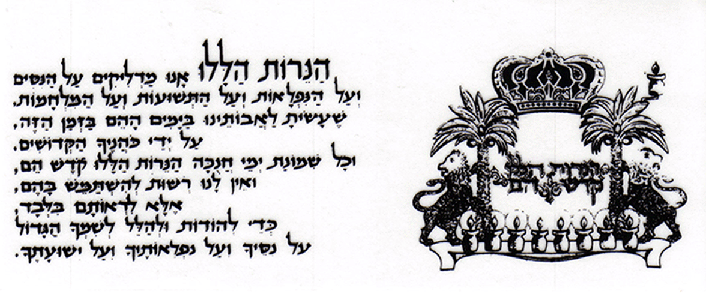 הַנֵּרוֹת הַלָּלוּ אָנוּ מַדְלִיקִים עַל הַנִּסִּים
וְעַל הַנִּפְלָאוֹת, וְעַל הַתְּשׁוּעוֹת וְעַל הַמִּלְחָמוֹת,
שֶׁעָשִׂיתָ לַאֲבוֹתֵינוּ בַּיָּמִים הָהֵם בַּזְּמַן הַזֶּה,
עַל יְדֵי כֹּהֲנֶיךָ הַקְּדוֹשִׁים.
וְכָל שְׁמוֹנַת יְמֵי חֲנֻכָּה הַנֵּרוֹת הַלָּלוּ קֹדֶשׁ הֵם,
וְאֵין לָנוּ רְשׁוּת לְהִשְׁתַּמֵּשׁ בָּהֶם,
אֶלָּא לִרְאוֹתָם בִּלְבָד,
כְּדֵי לְהוֹדוֹת וּלְהַלֵּל לְשִׁמְךָ הַגָּדוֹל
עַל נִסֶּיךָ וְעַל נִפְלְאוֹתֶיךָ וְעַל יְשׁוּעָתֶךָ.
הנרות הללו
קדש הם